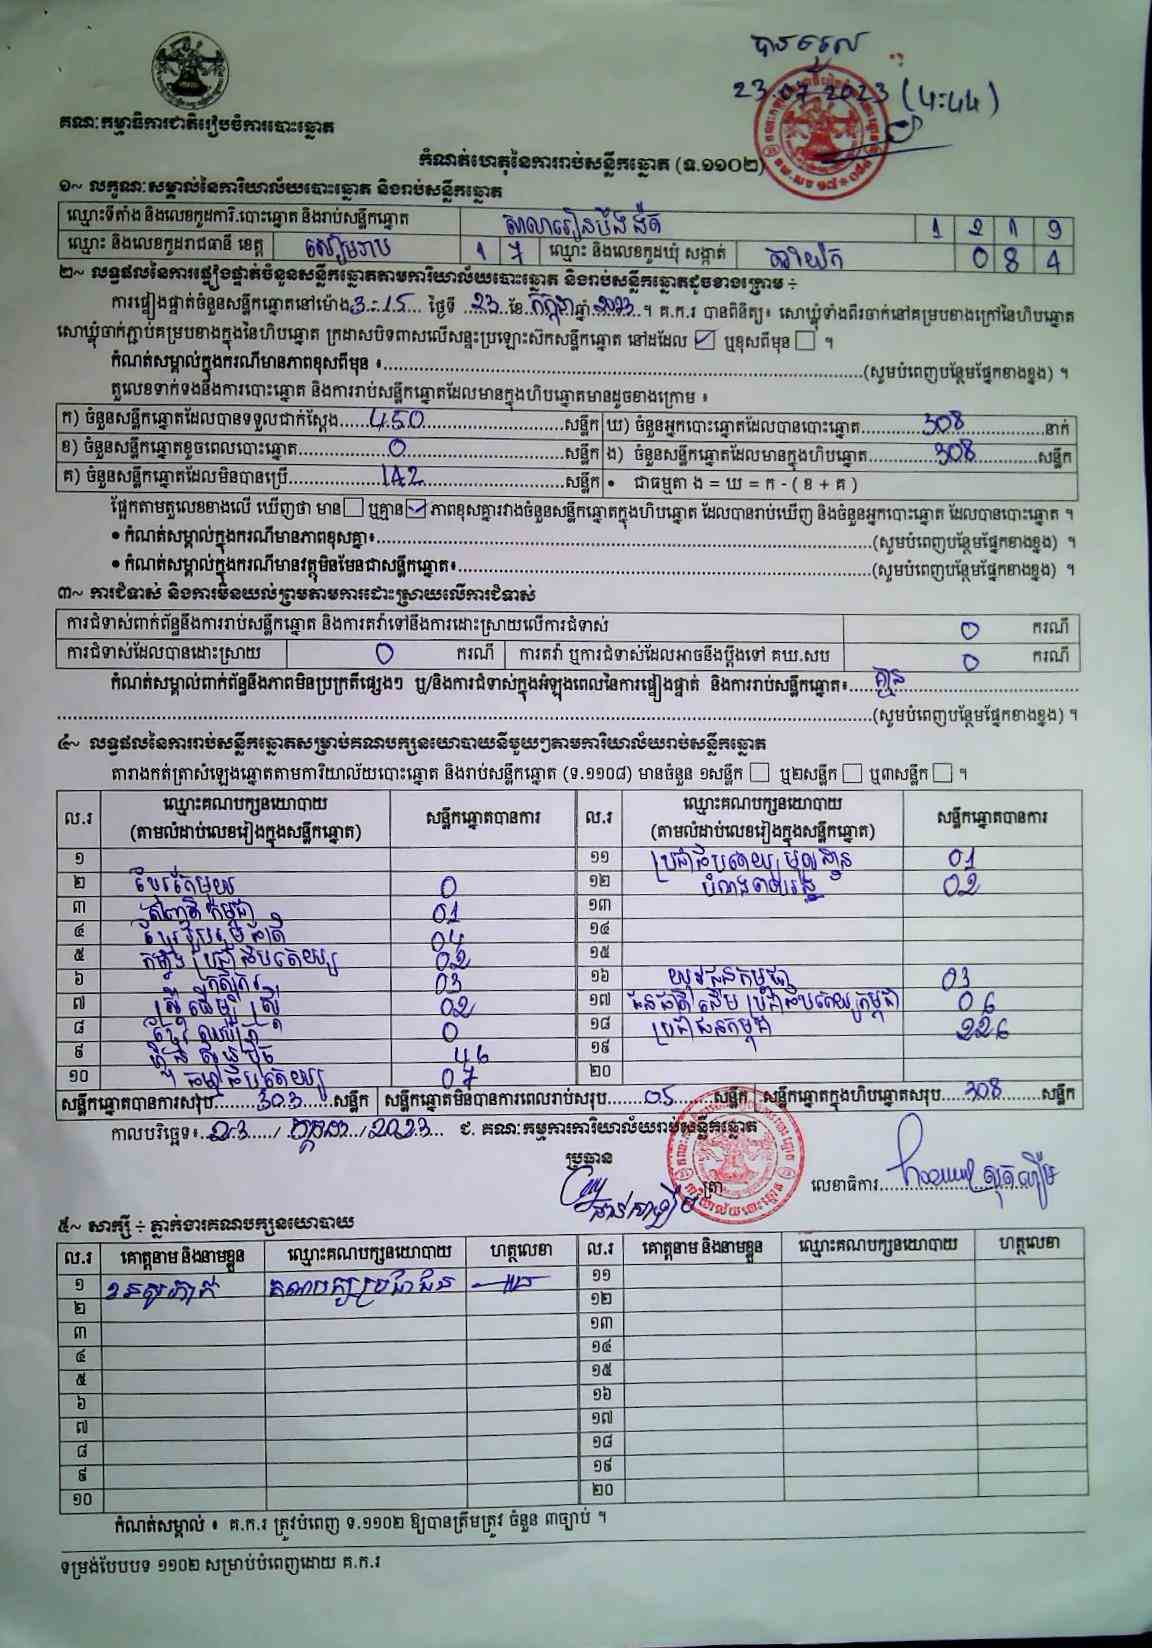 បានទទួល
23.07.2023 (4:44)
គណៈកម្មាធិការជាតិរៀបចំការបោះឆ្នោត
កំណត់ហេតុនៃការរាប់សន្លឹកឆ្នោត (ទ.១១០២)
១~ លក្ខណៈសម្គាល់នៃការិយាល័យបោះឆ្នោត និងរាប់សន្លឹកឆ្នោត
ឈ្មោះទីតាំង និងលេខកូដការិ.បោះឆ្នោត និងរាប់សន្លឹកឆ្នោត សាលារៀន 1 2 1 9
ឈ្មោះ និងលេខកូដរាជធានី ខេត្ត សៀមរាប 1 7 ឈ្មោះ និងលេខកូដឃុំ សង្កាត់ 0 8 4
២~ លទ្ធផលនៃការផ្ទៀងផ្ទាត់ចំនួនសន្លឹកឆ្នោតតាមការិយាល័យបោះឆ្នោត និងរាប់សន្លឹកឆ្នោតដូចខាងក្រោម ÷
ការផ្ទៀងផ្ទាត់ចំនួនសន្លឹកឆ្នោតនៅម៉ោង 3:15 ថ្ងៃទី 23 ខែ កក្កដា ឆ្នាំ 2023 ។ គ.ក.រ បានពិនិត្យ៖ សោឃ្លុំទាំងពីរចាក់នៅគម្របខាងក្រៅនៃហិបឆ្នោត
សោឃ្លុំចាក់ភ្ជាប់គម្របខាងក្នុងនៃហិបឆ្នោត ក្រដាសបិទពាសលើសន្ទះប្រឡោះស៊កសន្លឹកឆ្នោត នៅដដែល ☑ ឬខុសពីមុន ☐ ។
កំណត់សម្គាល់ក្នុងករណីមានភាពខុសពីមុន ៖ (សូមបំពេញបន្ថែមផ្នែកខាងខ្នង) ។
តួលេខទាក់ទងនឹងការបោះឆ្នោត និងការរាប់សន្លឹកឆ្នោតដែលមានក្នុងហិបឆ្នោតមានដូចខាងក្រោម ៖
ក) ចំនួនសន្លឹកឆ្នោតដែលបានទទួលជាក់ស្តែង 450 សន្លឹក ឃ) ចំនួនអ្នកបោះឆ្នោតដែលបានបោះឆ្នោត 308 នាក់
ខ) ចំនួនសន្លឹកឆ្នោតខូចពេលបោះឆ្នោត 0 សន្លឹក ង) ចំនួនសន្លឹកឆ្នោតដែលមានក្នុងហិបឆ្នោត 308 សន្លឹក
គ) ចំនួនសន្លឹកឆ្នោតដែលមិនបានប្រើ 142 សន្លឹក • ជាធម្មតា ង = ឃ = ក - ( ខ + គ )
ផ្អែកតាមតួលេខខាងលើ ឃើញថា មាន ☐ ឬគ្មាន ☑ ភាពខុសគ្នារវាងចំនួនសន្លឹកឆ្នោតក្នុងហិបឆ្នោត ដែលបានរាប់ឃើញ និងចំនួនអ្នកបោះឆ្នោត ដែលបានបោះឆ្នោត ។
• កំណត់សម្គាល់ក្នុងករណីមានភាពខុសគ្នា៖ (សូមបំពេញបន្ថែមផ្នែកខាងខ្នង) ។
• កំណត់សម្គាល់ក្នុងករណីមានវត្ថុមិនមែនជាសន្លឹកឆ្នោត៖ (សូមបំពេញបន្ថែមផ្នែកខាងខ្នង) ។
៣~ ការជំទាស់ និងការមិនយល់ព្រមតាមការដោះស្រាយលើការជំទាស់
ការជំទាស់ពាក់ព័ន្ធនឹងការរាប់សន្លឹកឆ្នោត និងការតវ៉ាទៅនឹងការដោះស្រាយលើការជំទាស់ 0 ករណី
ការជំទាស់ដែលបានដោះស្រាយ 0 ករណី ការតវ៉ា ឬការជំទាស់ដែលអាចនឹងប្តឹងទៅ គឃ.សប 0 ករណី
កំណត់សម្គាល់ពាក់ព័ន្ធនឹងភាពមិនប្រក្រតីផ្សេងៗ ឬ/និងការជំទាស់ក្នុងអំឡុងពេលនៃការផ្ទៀងផ្ទាត់ និងការរាប់សន្លឹកឆ្នោត៖ គ្មាន
(សូមបំពេញបន្ថែមផ្នែកខាងខ្នង) ។
៤~ លទ្ធផលនៃការរាប់សន្លឹកឆ្នោតសម្រាប់គណបក្សនយោបាយនីមួយៗតាមការិយាល័យរាប់សន្លឹកឆ្នោត
តារាងកត់ត្រាសំឡេងឆ្នោតតាមការិយាល័យបោះឆ្នោត និងរាប់សន្លឹកឆ្នោត (ទ.១១០៨) មានចំនួន ១សន្លឹក ☐ ឬ២សន្លឹក ☐ ឬ៣សន្លឹក ☐ ។
ល.រ ឈ្មោះគណបក្សនយោបាយ (តាមលំដាប់លេខរៀងក្នុងសន្លឹកឆ្នោត) សន្លឹកឆ្នោតបានការ ល.រ ឈ្មោះគណបក្សនយោបាយ (តាមលំដាប់លេខរៀងក្នុងសន្លឹកឆ្នោត) សន្លឹកឆ្នោតបានការ
១ ១១ ប្រជាធិបតេយ្យមូលដ្ឋាន 01
២ ខ្មែរតែមួយ 0 ១២ បំណងពលរដ្ឋ 02
៣ សញ្ជាតិកម្ពុជា 01 ១៣
៤ ខ្មែររួបរួមជាតិ 04 ១៤
៥ កម្លាំងប្រជាធិបតេយ្យ 02 ១៥
៦ កសិករ 03 ១៦ យុវជនកម្ពុជា 03
៧ ស្ត្រីដើម្បីស្ត្រី 02 ១៧ ជនជាតិដើមប្រជាធិបតេយ្យកម្ពុជា 06
៨ 0 ១៨ ប្រជាជនកម្ពុជា 226
៩ ហ៊្វុនស៊ិនប៉ិច 46 ១៩
១០ ធម្មាធិបតេយ្យ 07 ២០
សន្លឹកឆ្នោតបានការសរុប 303 សន្លឹក សន្លឹកឆ្នោតមិនបានការពេលរាប់សរុប 05 សន្លឹក សន្លឹកឆ្នោតក្នុងហិបឆ្នោតសរុប 308 សន្លឹក
កាលបរិច្ឆេទ៖ 23 / កក្កដា / 2023 ជ. គណៈកម្មការការិយាល័យរាប់សន្លឹកឆ្នោត
ប្រធាន
ត្រា លេខាធិការ
៥~ សាក្សី ÷ ភ្នាក់ងារគណបក្សនយោបាយ
ល.រ គោត្តនាម និងនាមខ្លួន ឈ្មោះគណបក្សនយោបាយ ហត្ថលេខា ល.រ គោត្តនាម និងនាមខ្លួន ឈ្មោះគណបក្សនយោបាយ ហត្ថលេខា
១ គណបក្សប្រជាជន ១១
២ ១២
៣ ១៣
៤ ១៤
៥ ១៥
៦ ១៦
៧ ១៧
៨ ១៨
៩ ១៩
១០ ២០
កំណត់សម្គាល់ ៖ គ.ក.រ ត្រូវបំពេញ ទ.១១០២ ឱ្យបានត្រឹមត្រូវ ចំនួន ៣ច្បាប់ ។
ទម្រង់បែបបទ ១១០២ សម្រាប់បំពេញដោយ គ.ក.រ